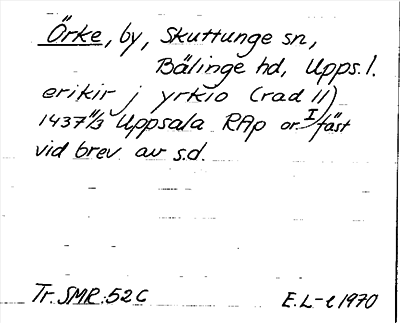 Örke, by, Skuttunge sn,
Bälinge hd, Upps. l.
erikir j yrkio (rad 11)
1437 11/3 Uppsala RAp or. I fäst
vid brev av s.d.
Tr. SMR:52C
E.L-e 1970